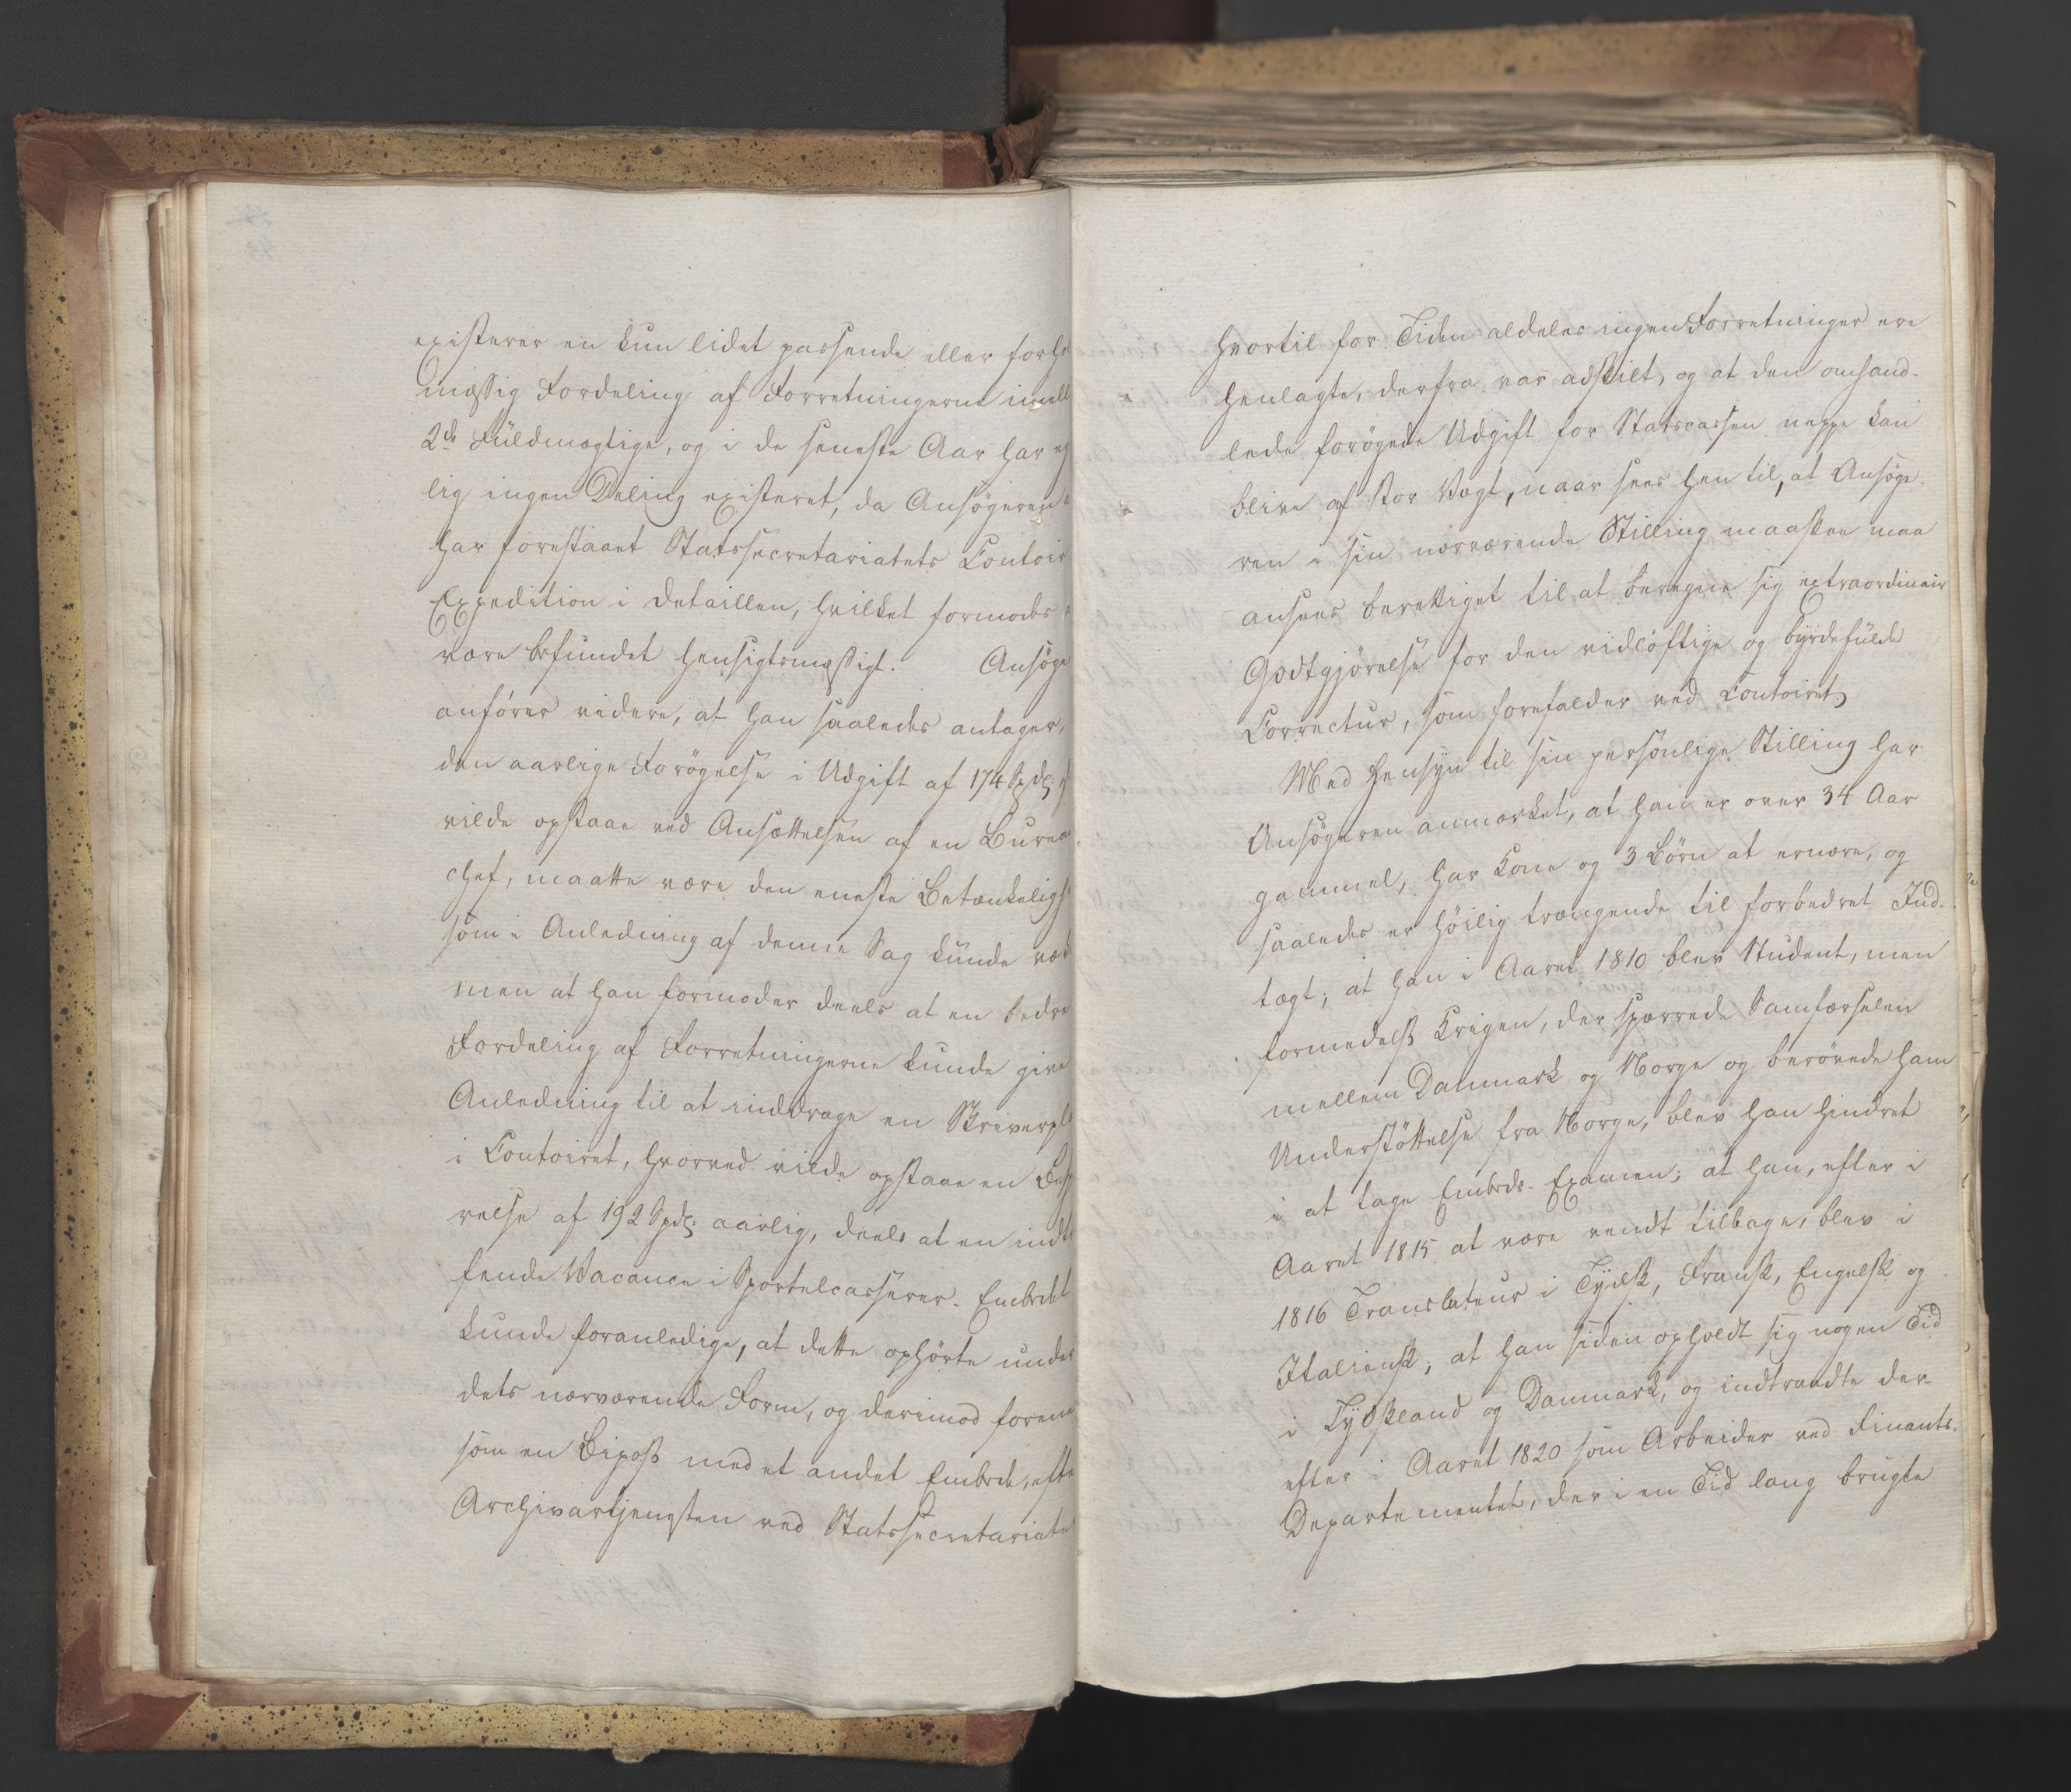 existerer en kun lidet passende eller forho
mæssig Fordeling af Forretningerne imell
2de Fuldmægtige, og i de seneste Aar har eg
lig ingen Deling existeret, da Ansøgeren
har forestaaet Statssecretariatets Contoir
Expedition i Detaillen, hvilket formodes
være befundet hensigtsmæssigt. Ansøge
anfører videre, at han saaledes antager,
den aarlige Forøgelse i Udgift af 174 Spdl:
vilde opstaae ved Ansættelsen af en Burea
chef, maatte være den eneste Betænkeligh
som i Anledning af denne Sag kunde væk
men at han formoder deels at en bedre
Fordeling af Forretningerne kunde give
Anledning til at inddrage en Skriverpl
i Contoiret, hvorved vilde opstaae en Besp
relse af 192 Spdl: aarlig, deels at en indtr
fende Vacance i Sportelcasserer-Embedet
kunde foranledige, at dette ophørte under
dets nærværende Form, og derimod forene
som en Bipost med et andet Embede, efte
Archivartjenesten ved Statssecretariate
hvortil for Tiden aldeles ingen Forretninger ere
henlagte, derfra var adskilt, og at den omhand-
lede forøgede Udgift for Statscassen neppe kan
blive af stor Vægt, naar sees hen til, at Ansøge-
ren i sin nærværende Stilling maaskee maa
ansees berettiget til at beregne sig extraordinair
Godtgjørelse for den vidløftige og byrdefulde
Correctur, som forefalder ved Contoiret,
Med Hensyn til sin personlige Stilling har
Ansøgeren anmærket, at han er over 34 Aar
gammel, har Kone og 3 Børn at ernære, og
saaledes er høilig trængende til forbedret Ind-
tægt; at han i Aaret 1810 blev Student, men
formedelst Krigen, der spærrede Samfærselen
mellem Danmark og Norge og berøvede ham
Understøttelse fra Norge, blev han hindret
i at tage Embeds-Examen; at han, efter i
Aaret 1815 at være vendt tilbage, blev i
1816 Translateur i Tydsk, Fransk, Engelsk og
Italiensk; at han siden opholdt sig nogen Tid
i Tydskland og Danmark, og indtraadte der-
efter i Aaret 1820 som Arbeider ved Finants-
Departementet, der i en Tid lang brugte